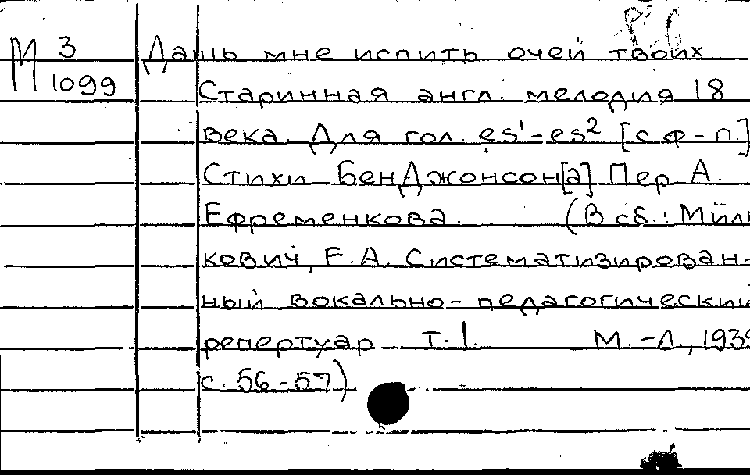 М 3
1099
Дашь мне испить очей твоих
Старинная англ. мелодия 18
века. Для гол. es¹-es² [с ф-п]
Стихи БенДжонсон[а] Пер А.
Ефременкова. (В сб.: Миль
кович, Е.А. Систематизирован-
ный вокально-педагогический
репертуар Т.1. М.-Л., 193
с. 56-57)